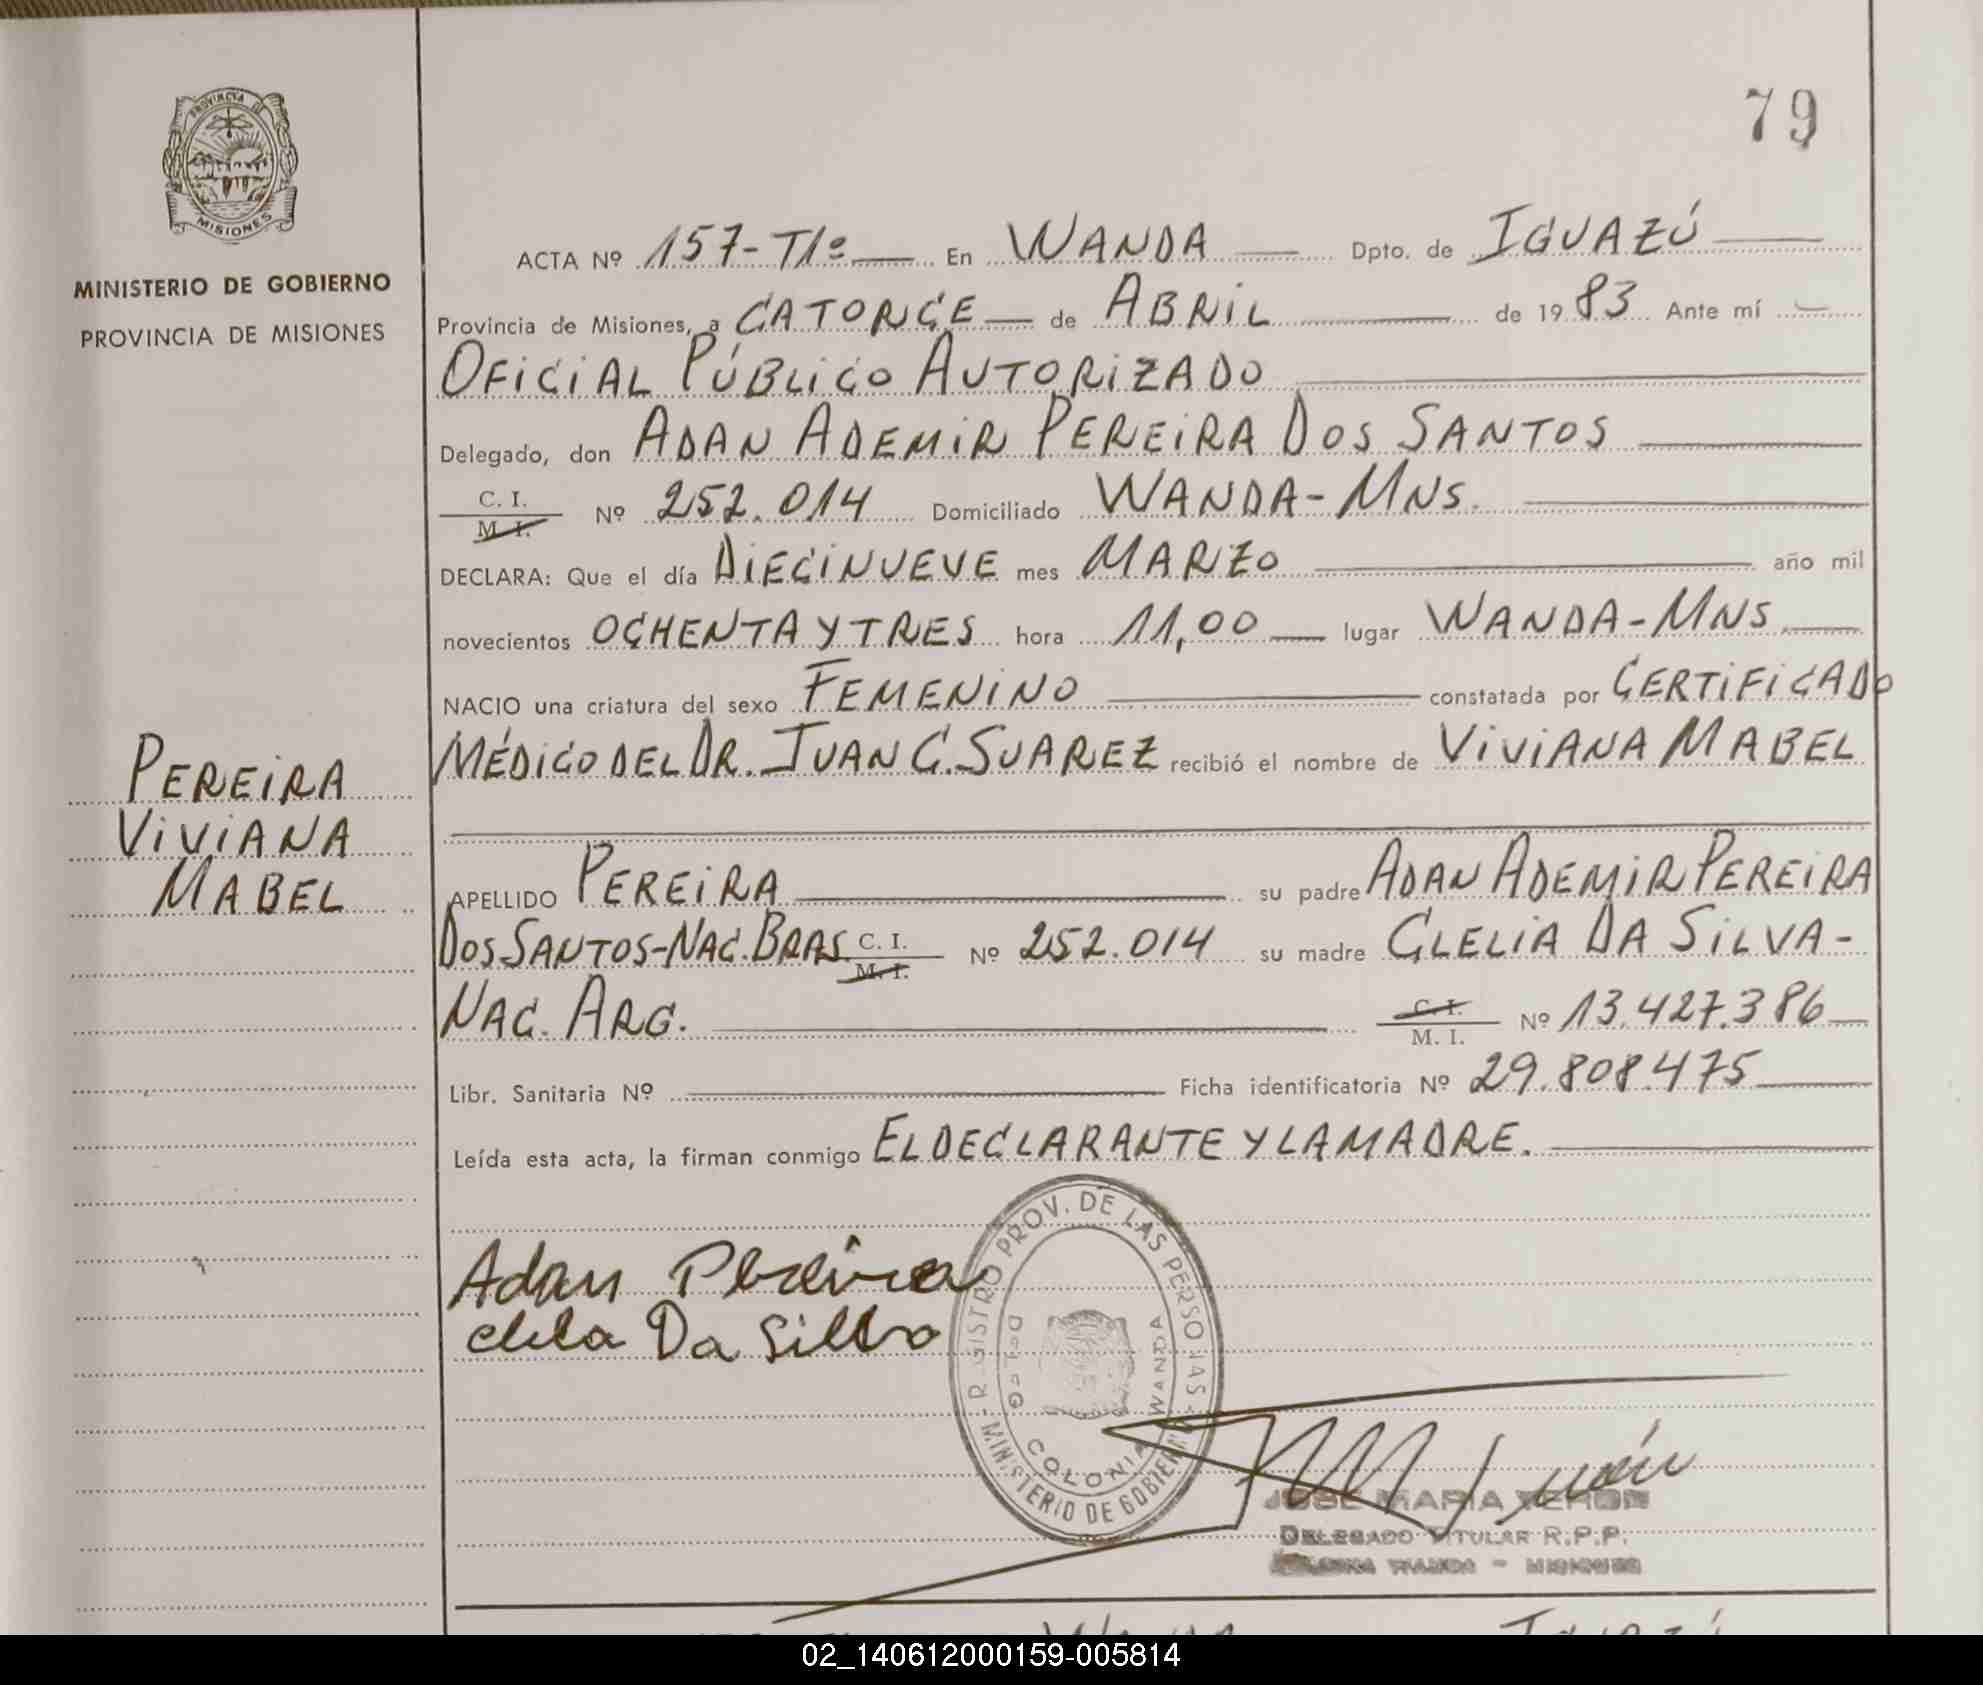 79
PROVINCIA DE
MISIONES
MINISTERIO DE GOBIERNO
PROVINCIA DE MISIONES
PEREIRA
VIVIANA
MABEL
ACTA Nº 157-T1º En WANDA Dpto. de IGUAZÚ
Provincia de Misiones, a CATORCE de ABRIL de 1983 Ante mí
OFICIAL PÚBLICO AUTORIZADO
Delegado, don ADAN ADEMIR PEREIRA DOS SANTOS
C. I.
M. I. Nº 252.014 Domiciliado WANDA-MNS.
DECLARA: Que el día DIECINUEVE mes MARZO año mil
novecientos OCHENTA Y TRES hora 11,00 lugar WANDA-MNS
NACIO una criatura del sexo FEMENINO constatada por CERTIFICADO
MÉDICO DEL DR. JUAN C. SUAREZ recibió el nombre de VIVIANA MABEL
APELLIDO PEREIRA su padre ADAN ADEMIR PEREIRA
DOS SANTOS-NAC. BRAS. C. I. M. I. Nº 252.014 su madre CLELIA DA SILVA-
NAC. ARG. C. I. M. I. Nº 13.427.386
Libr. Sanitaria Nº Ficha identificatoria Nº 29.808.475
Leída esta acta, la firman conmigo EL DECLARANTE Y LA MADRE.
Adan Pereira
Da Silva
PROV. DE LAS
MINISTERIO DE GOBIERNO
COLONIA WANDA
JOSE MARIA VERON
DELEGADO TITULAR R.P.P.
COLONIA WANDA - MISIONES
02_140612000159-005814